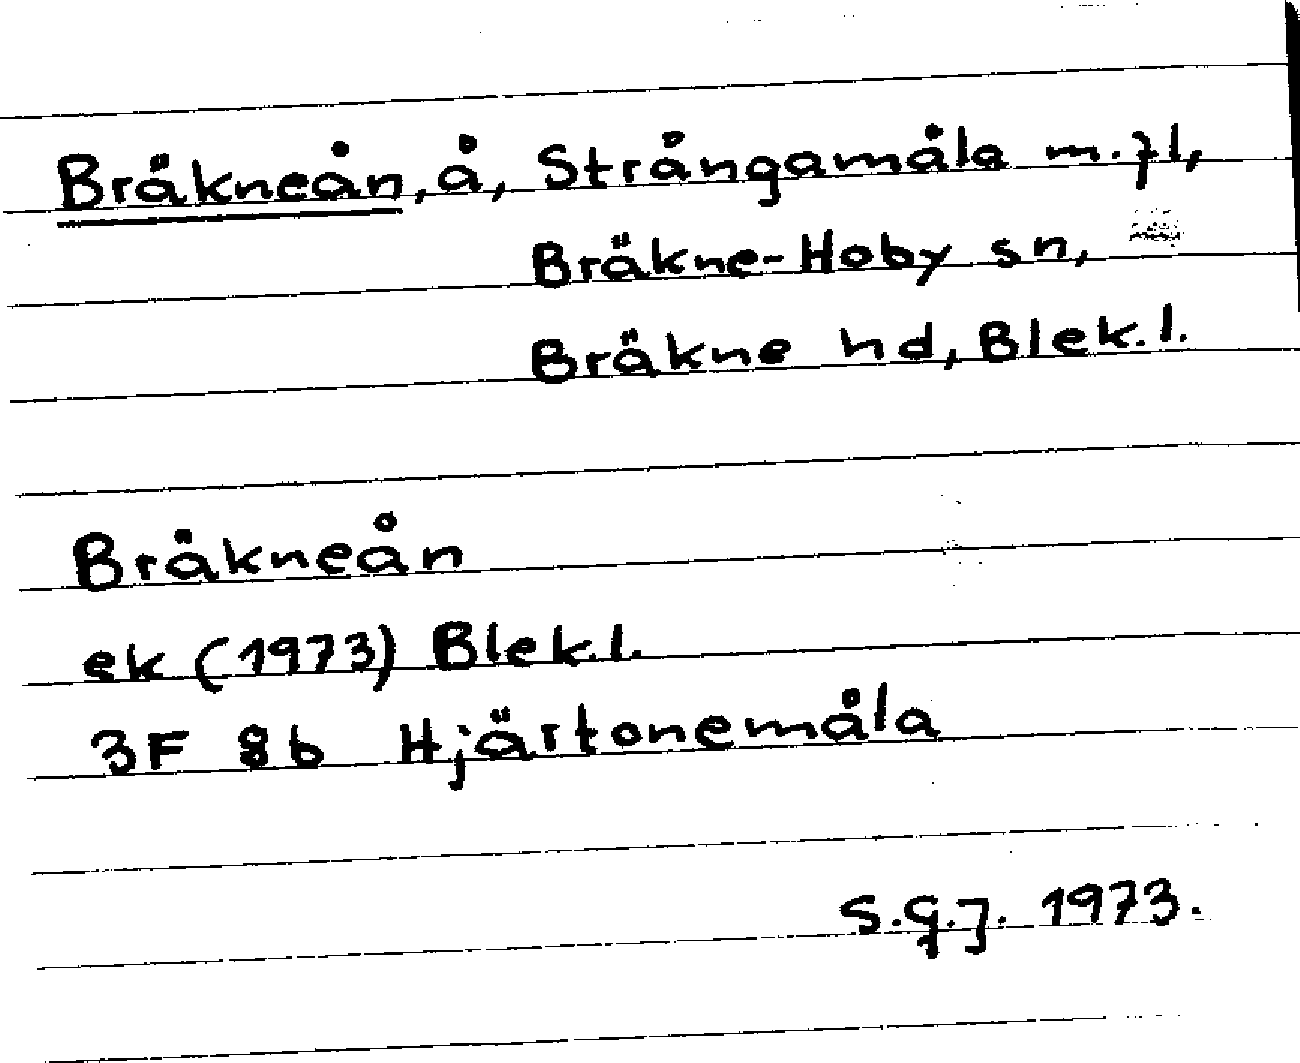 Bräkneån, å, Strångamåla m.fl,
Bräkne-Hoby sn,
Bräkne hd, Blek.l.
Bräkneån
ek (1973) Blek.l.
3F 8b Hjärtonemåla
S.G.J. 1973.